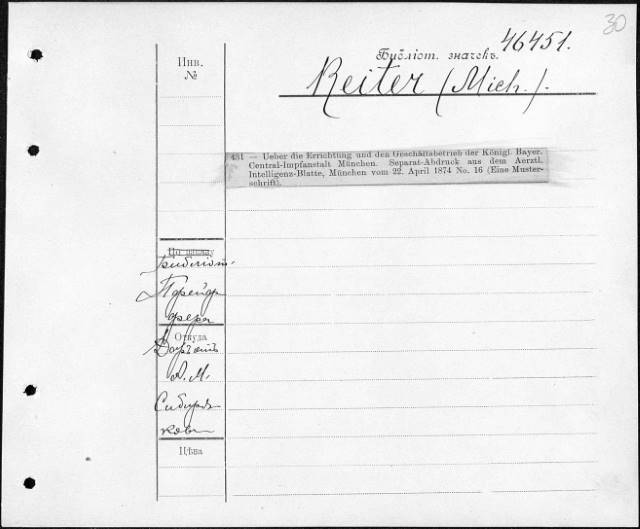 30
46451.
Инв.
№
Библіот. значекъ.
Reiter (Mich.).
431 — Ueber die Errichtung und den Geschäftsbetrieb der Königl. Bayer.
Central-Impfanstalt München. Separat-Abdruck aus dem Aerztl.
Intelligenz-Blatte, München vom 22. April 1874 No. 16 (Eine Muster-
schrift).
Откуда
А. М.
Сибиря-
ковъ
Цѣна